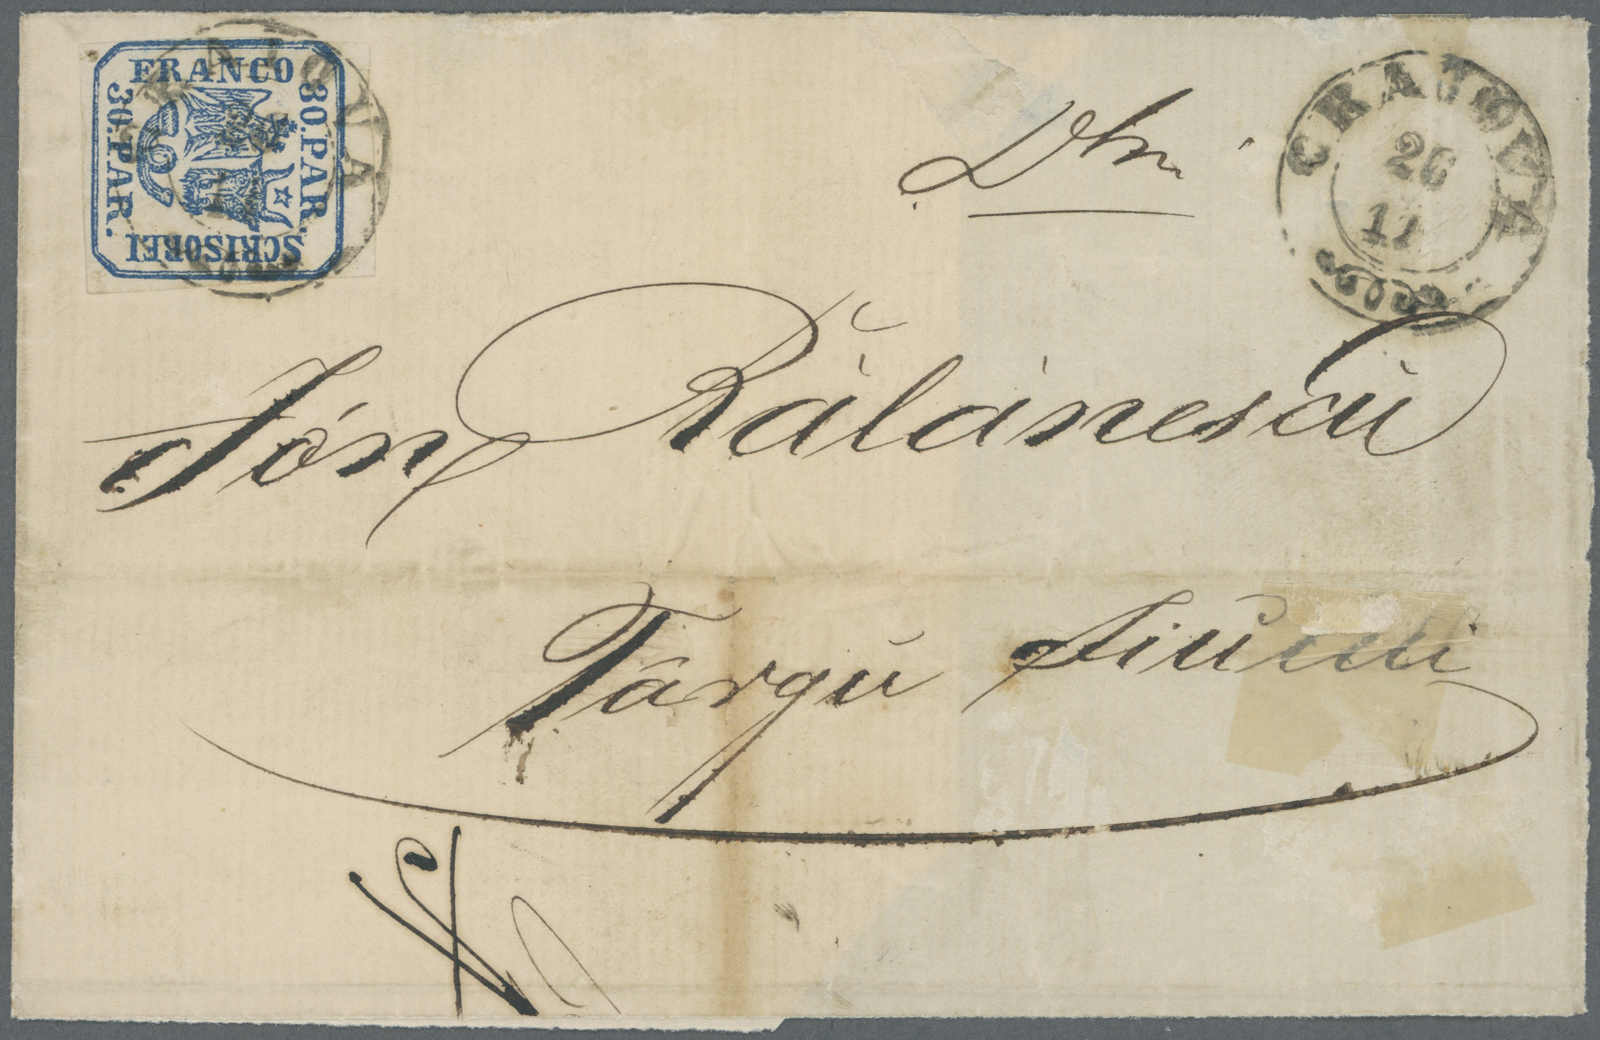 FRANCO
30.PAR.
30.PAR.
SCRISOREI
CRAIOVA
CRAIOVA
26
11
Dlui
Ión Rălánescu
Târgu Jiului